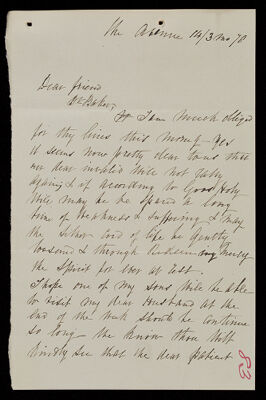 The Avenue 14/3 mo 70
Dear friend
Dr Baker,
I am much obliged
for thy lines this morng - Yes
it seems now pretty clear to us that
our dear invalid will not rally
again & if according to God's Holy
Will may he be spared a long
time of weakness & suffering & may
the silver cord of life be gently
loosend & through Redeeming Mercy
the Spirit for ever at rest.
I hope one of my sons will be able
to visit my dear Husband at the
end of the week should he continue
so long - we know thou wilt
kindly see that the dear patient
83